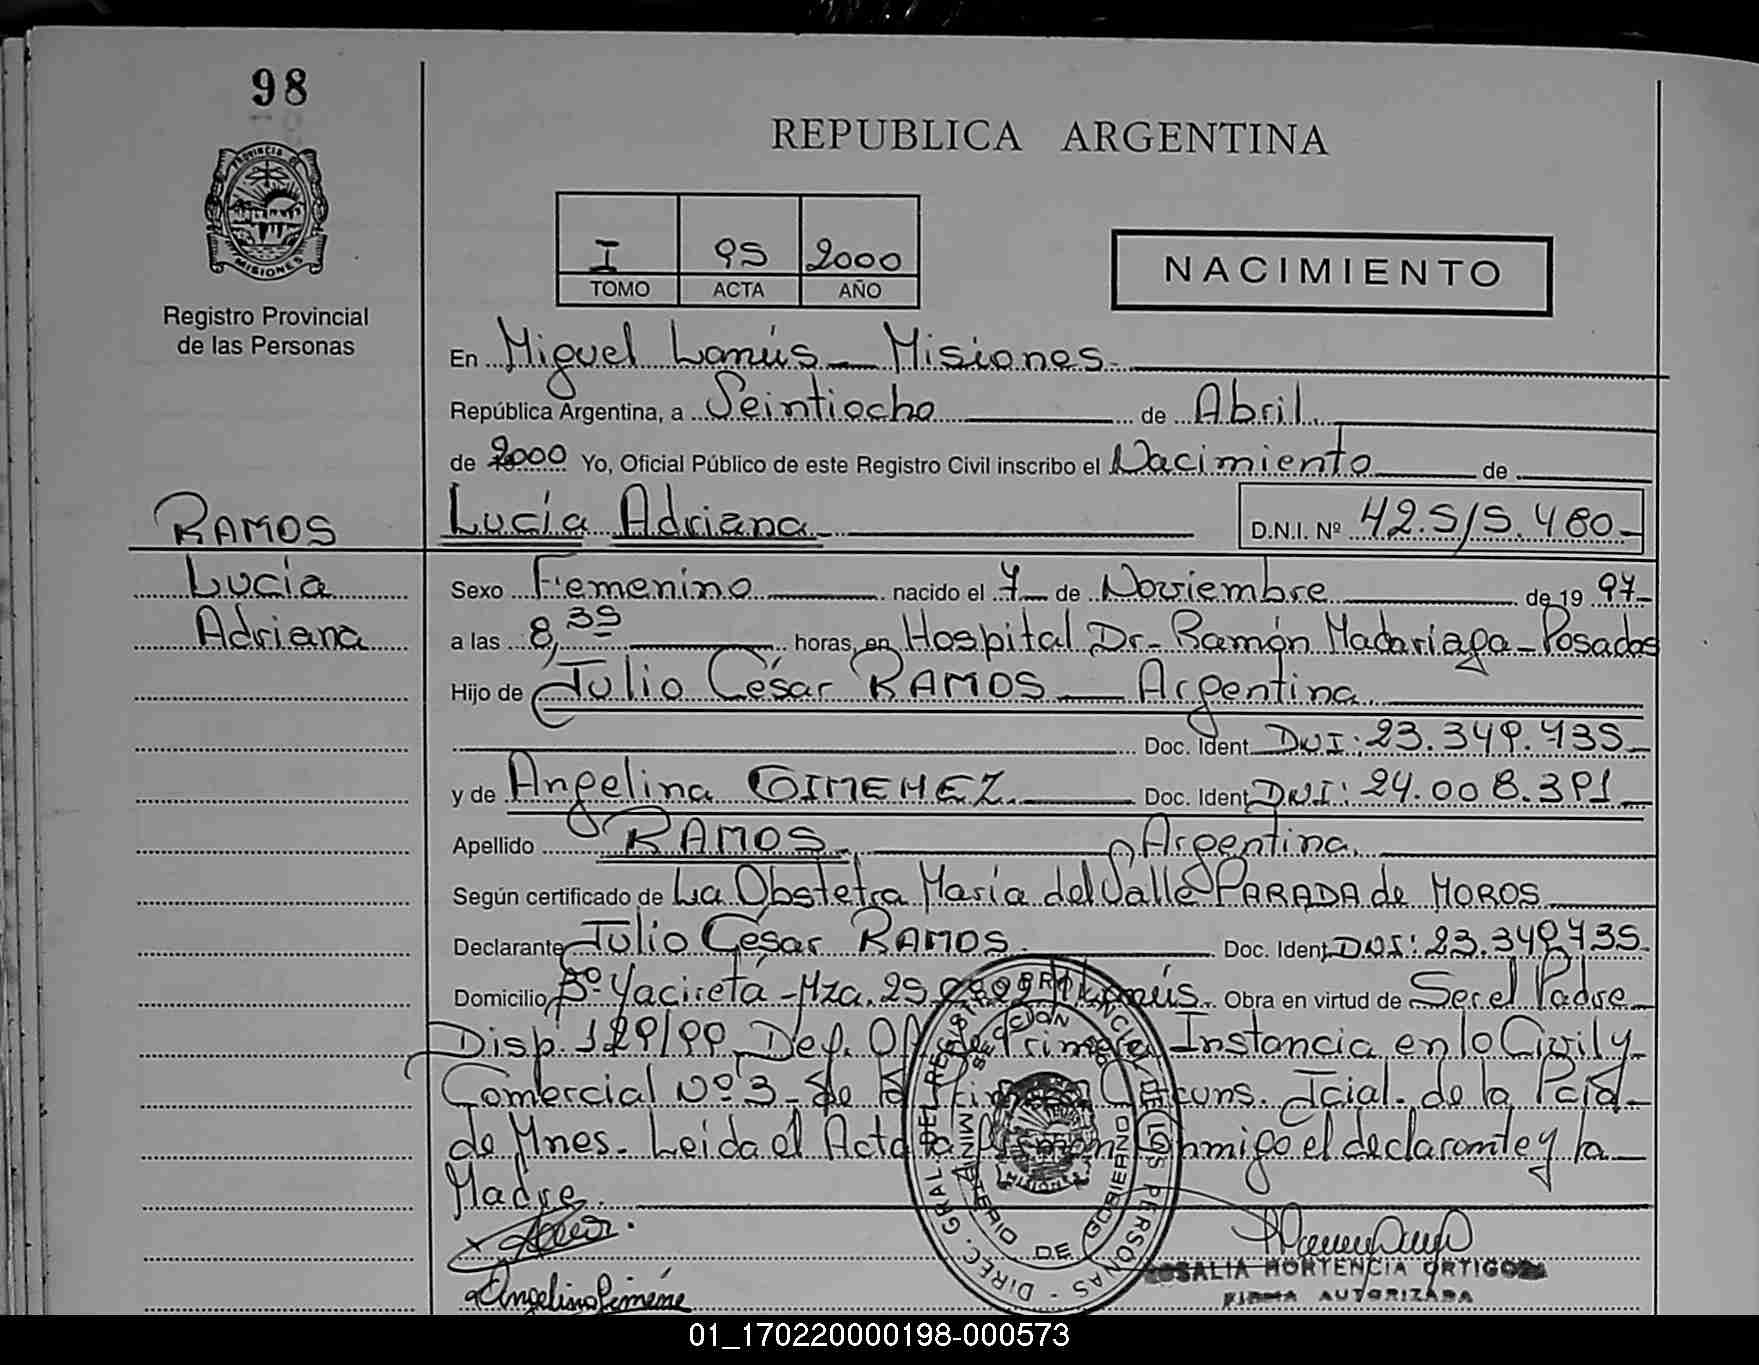 98
PROVINCIA DE
MISIONES
Registro Provincial
de las Personas
RAMOS
Lucía
Adriana
REPUBLICA ARGENTINA
I 95 2000
TOMO ACTA AÑO
NACIMIENTO
En Miguel Lanús - Misiones.
República Argentina, a Veintiocho de Abril.
de 2000 Yo, Oficial Público de este Registro Civil inscribo el Nacimiento de
Lucía Adriana D.N.I. Nº 42.515.480-
Sexo Femenino nacido el 7 de Noviembre de 19 97-
a las 8,35 horas, en Hospital Dr. Ramón Madariaga - Posadas
Hijo de Julio César RAMOS - Argentina.
Doc. Ident. DNI: 23.349.435-
y de Angelina GIMENEZ. Doc. Ident. DNI: 24.008.391-
Apellido RAMOS. Argentina.
Según certificado de La Obstetra María del Valle PARADA de MOROS
Declarante Julio César RAMOS. Doc. Ident. DNI: 23.349.435.
Domicilio Bº Yaciretá - Mza. 25 Lanús. Obra en virtud de Ser el Padre
Disp. 129/99 Def. Of. de Primera Instancia en lo Civil y
Comercial Nº 3 - de la Primera Circuns. Jcial. de la Pcia.
de Mnes. Leida el Acta la firman conmigo el declarante y la
Madre.
Angelina Gimene
DIREC. GRAL. DEL REGISTRO PROVINCIAL DE LOS PERSONAS
MINISTERIO DE GOBIERNO
MISIONES
ROSALIA HORTENCIA ORTIGOZA
FIRMA AUTORIZADA
01_170220000198-000573